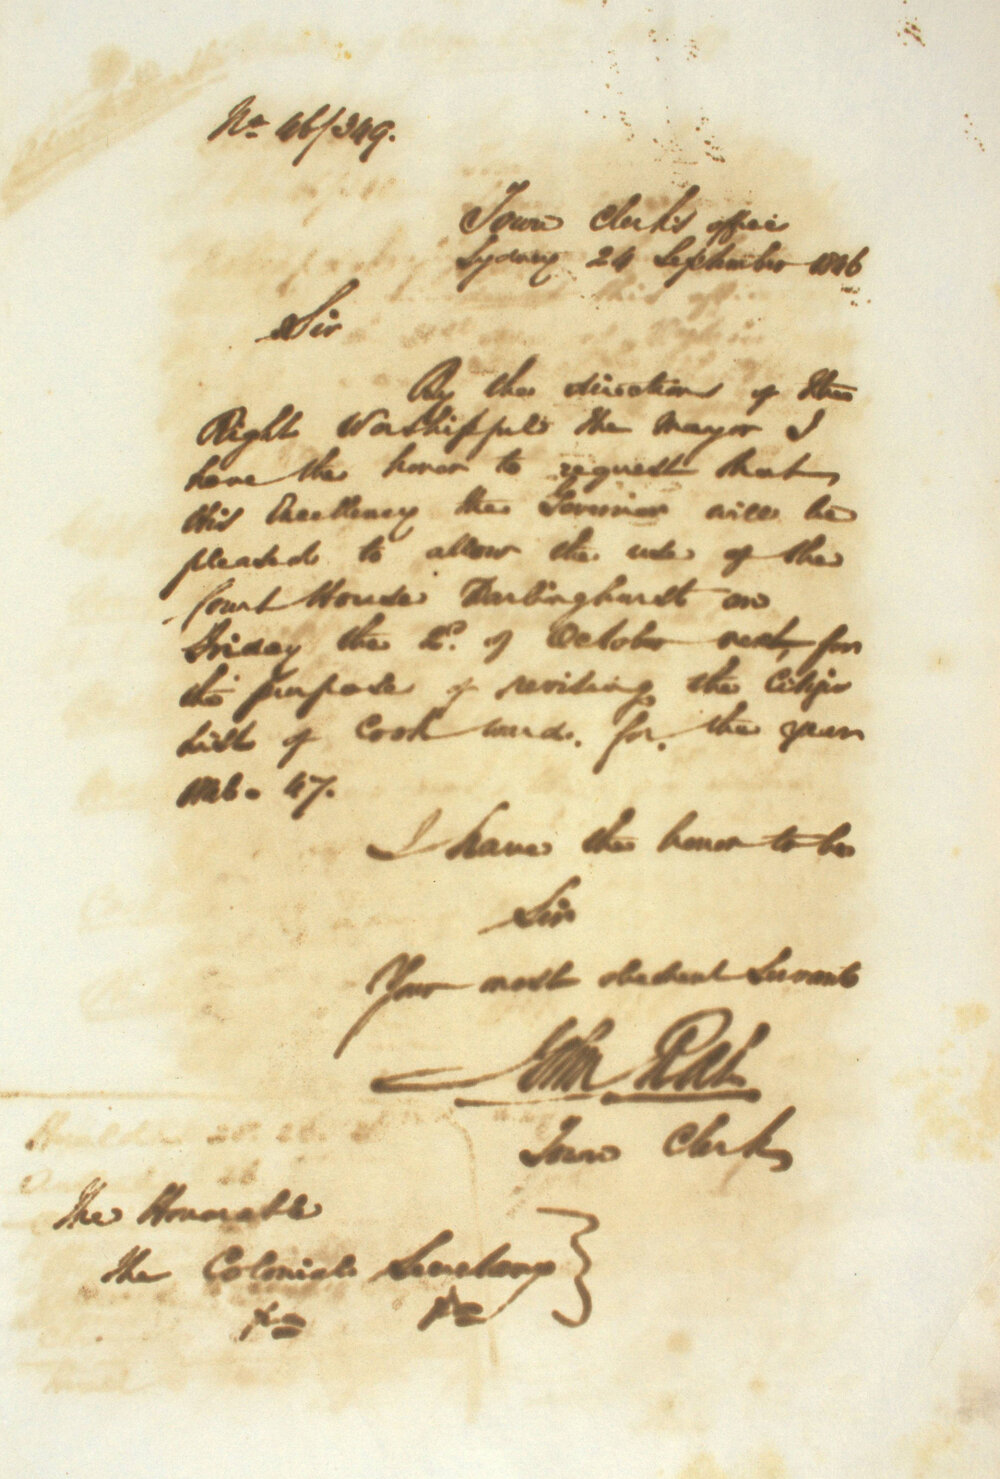 No 46/349.
Town Clerk's office
Sydney 24 September 1846
Sir
By the direction of the
Right Worshipful the Mayor I
have the honor to request that
His Excellency the Governor will be
pleased to allow the use of the
Court House Darlinghurst on
Friday the 2d. of October next, for
the purpose of revising the Citizen
lists of Cook ward. for. the year
1846-47.
I have the honor to be
Sir
Your most obedient Servant
John Rae
Town Clerk
The Honorable
The Colonial Secretary
&c &c